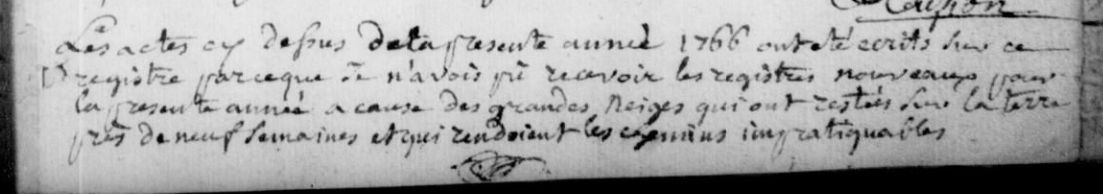 Les actes cy dessus de la presente anneé 1766 ont eté ecrits sur ce
registre parceque Je n'avois pû recevoir les registres nouveaux pour
la presente anneé a cause des grandes Neiges qui ont restées sur la terre
près de neuf semaines et qui rendoient les chemins impratiquables